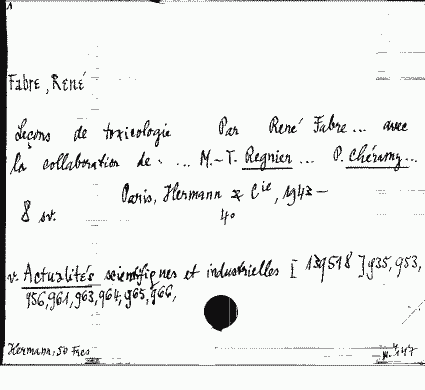 Fabre, René
Leçons de toxicologie Par René Fabre... avec
la collaboration de... M.-T. Regnier... P. Chéramy...
Paris, Hermann & Cie, 1943-
8 sv. 40
v. Actualités scientifiques et industrielles [ 139518 ] 935, 953,
956, 961, 963, 964, 965, 966,
Hermann: 50 Frcs